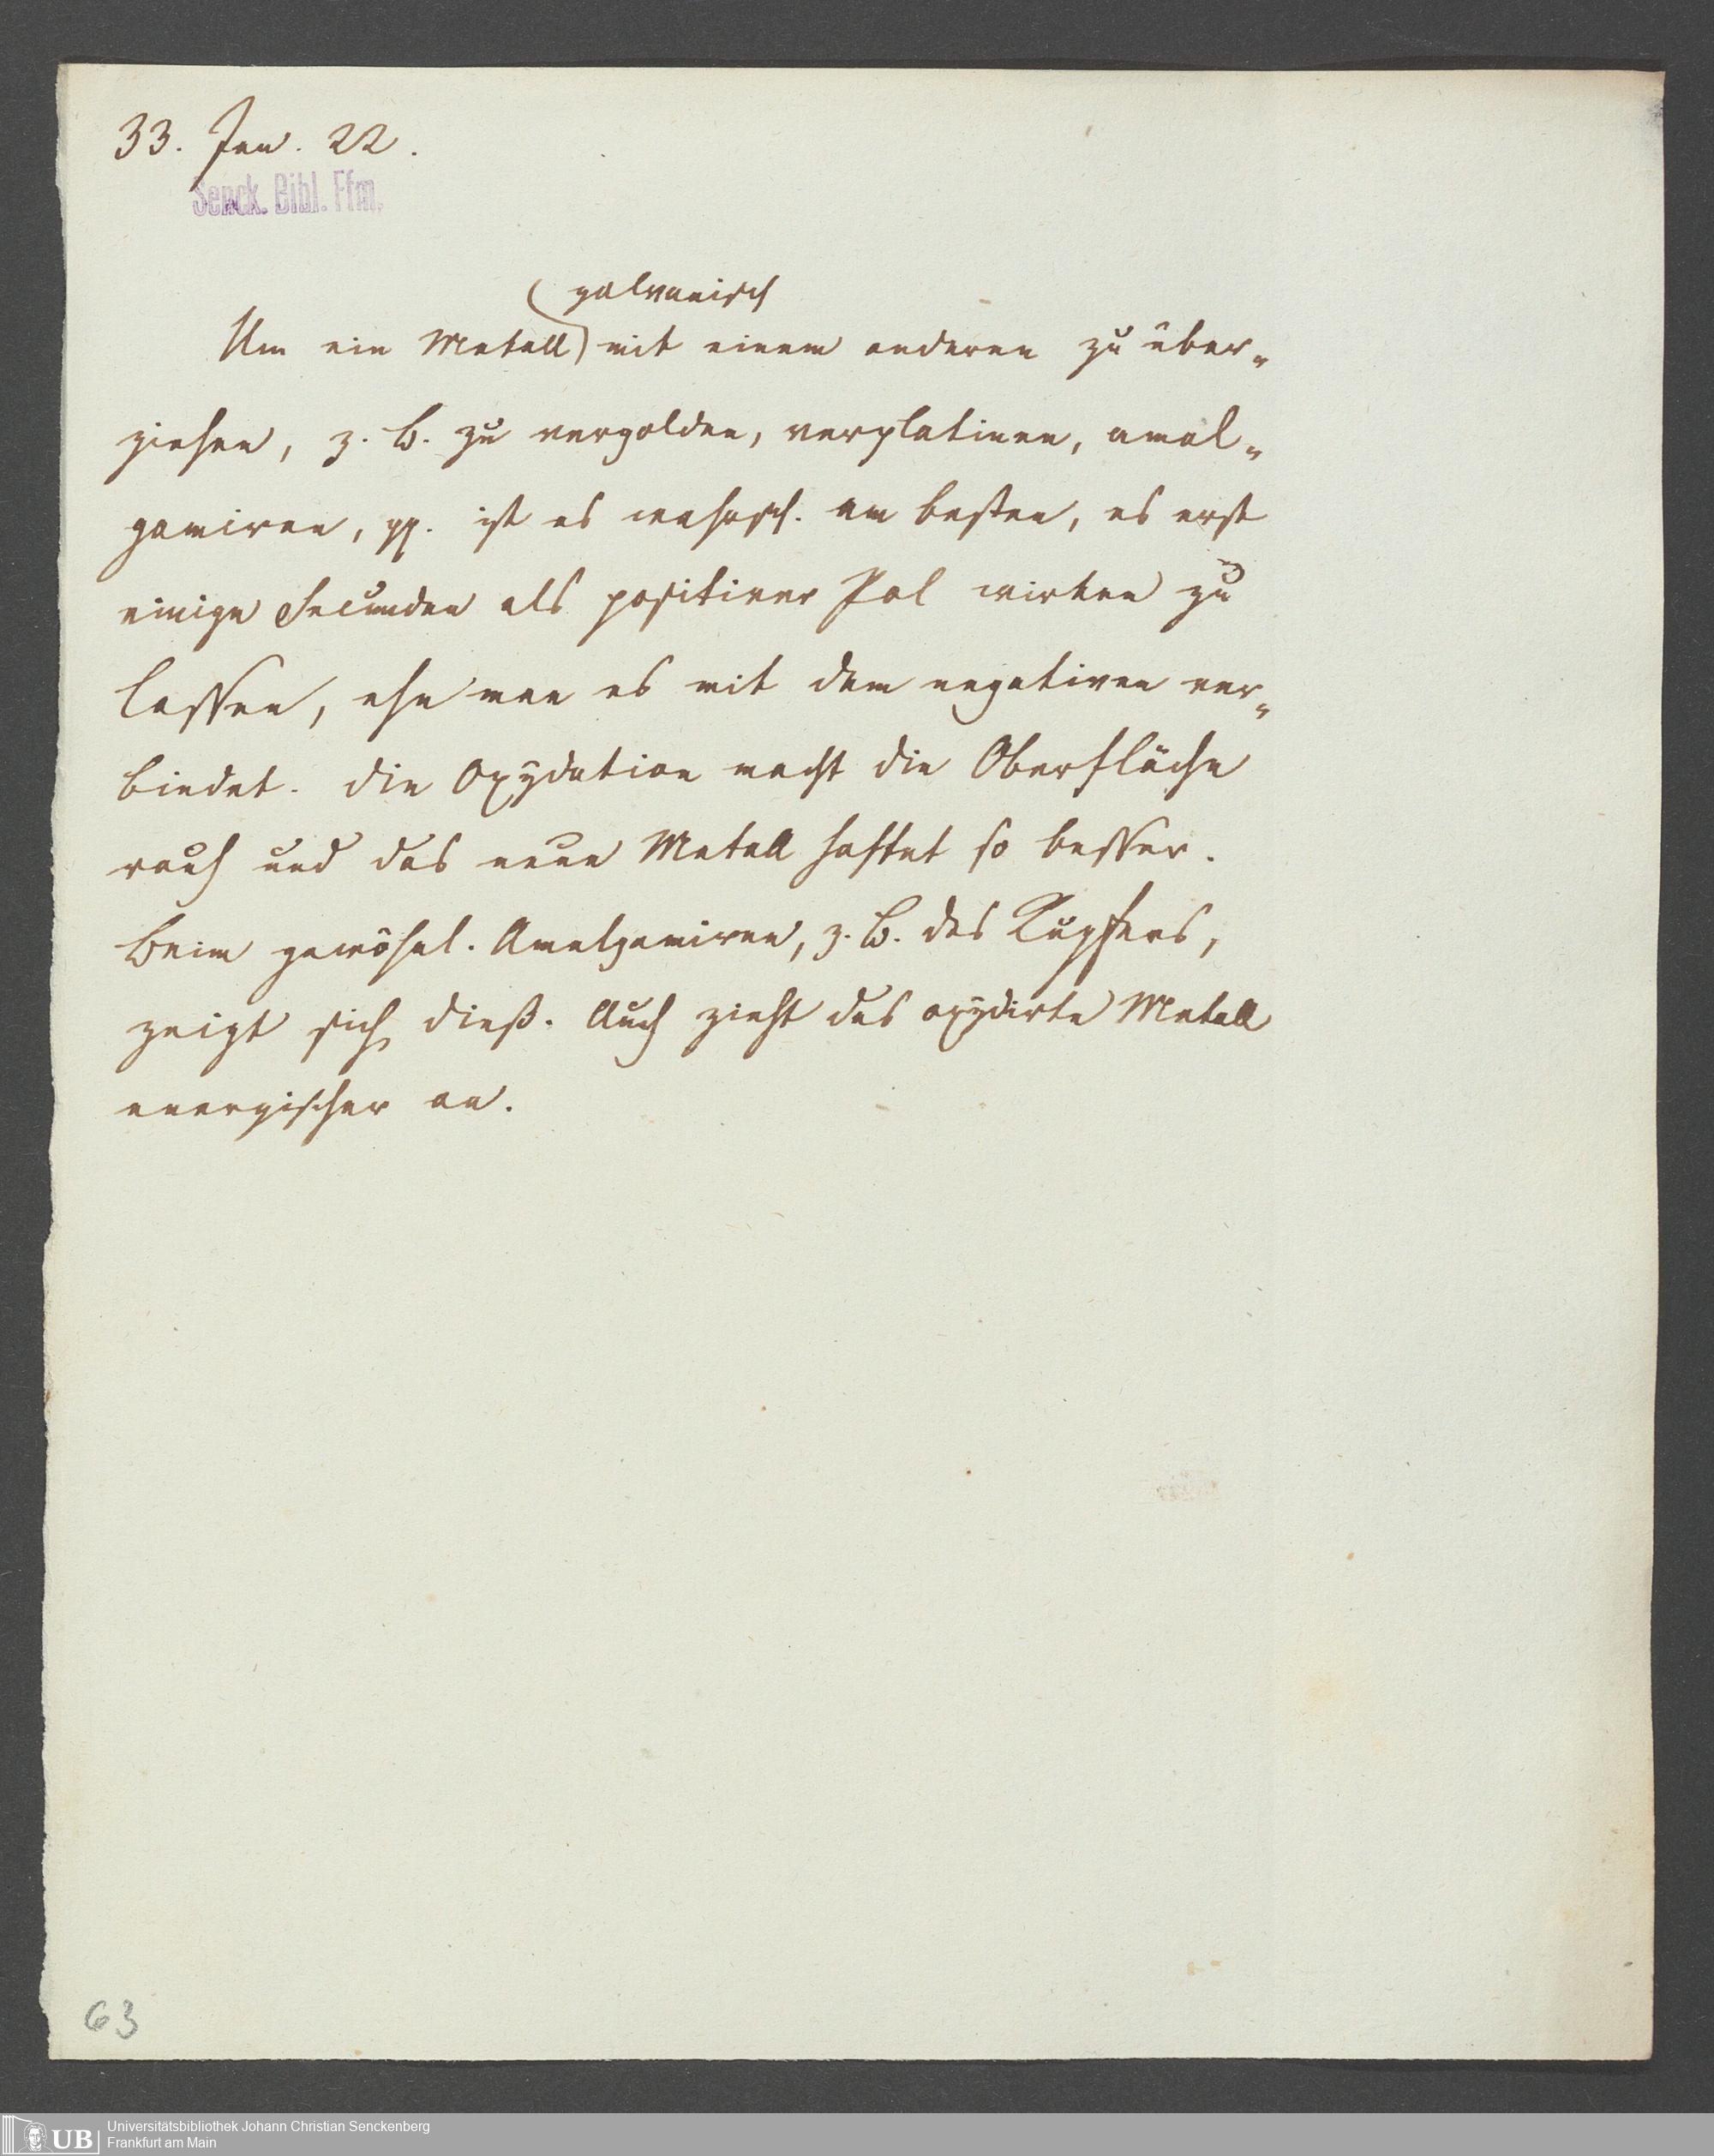 33. Jan. 22.
Senck. Bibl. Ffm.
galvanisch
Um ein Metall mit einem anderen zu über-
ziehen, z. B. zu vergolden, verplatinen, amal-
gamiren, pp. ist es wahrsch. am besten, es erst
einige Secunden als positiver Pol wirken zu
lassen, ehe man es mit dem negativen ver-
bindet. Die Oxydation macht die Oberfläche
rauh und das neue Metall haftet so besser.
Beim gewöhnl. Amalgamiren, z. B. des Kupfers,
zeigt sich dieß. Auch zieht das oxydirte Metall
energischer an.
63
UB
Universitätsbibliothek Johann Christian Senckenberg
Frankfurt am Main